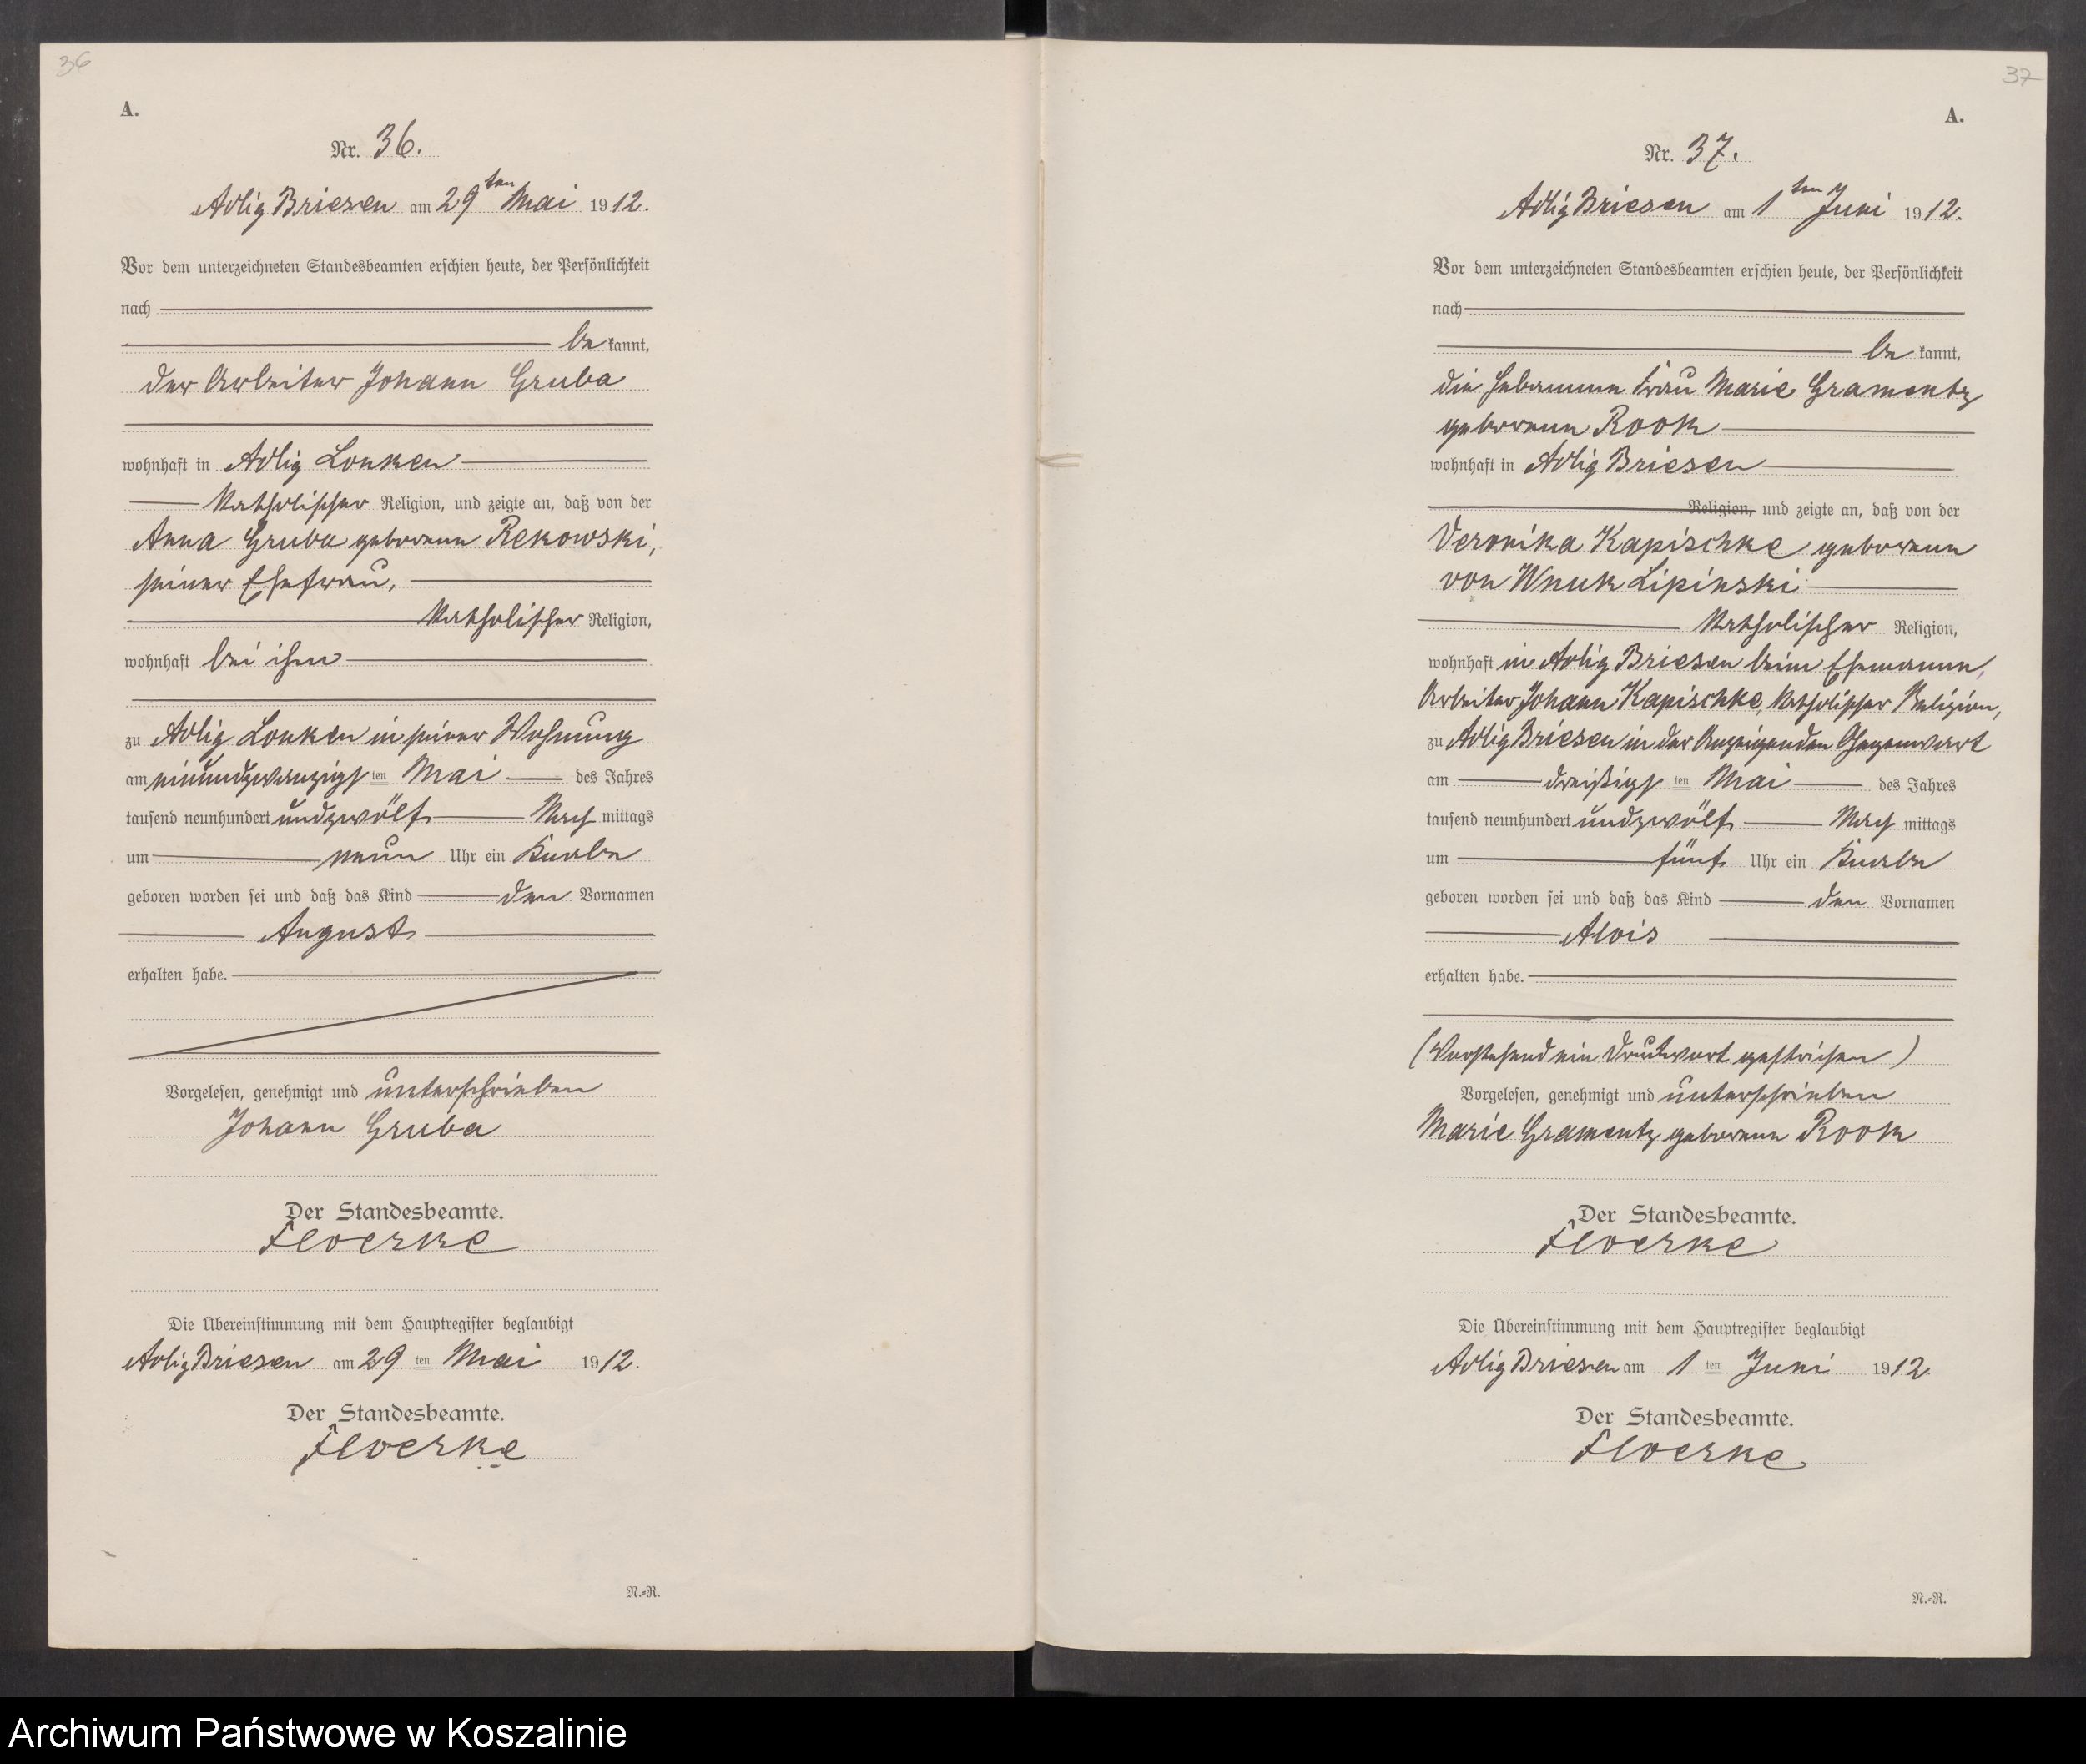 36
A.
Nr. 36.
Adlig Briesen am 29ten Mai 1912.
Vor dem unterzeichneten Standesbeamten erschien heute, der Persönlichkeit
nach
be kannt,
der Arbeiter Johann Gruba
wohnhaft in Adlig Lonken
katholischer Religion, und zeigte an, daß von der
Anna Gruba geborenen Rekowski,
seiner Ehefrau,
katholischer Religion,
wohnhaft bei ihm
zu Adlig Lonken in seiner Wohnung
am einundzwanzigsten Mai des Jahres
tausend neunhundert undzwölf Nach mittags
um neun Uhr ein Knabe
geboren worden sei und daß das Kind den Vornamen
August
erhalten habe.
Vorgelesen, genehmigt und unterschrieben
Johann Gruba
Der Standesbeamte.
Floerke
Die Übereinstimmung mit dem Hauptregister beglaubigt
Adlig Briesen am 29 ten Mai 1912.
Der Standesbeamte.
Floerke
N.-R.
37
A.
Nr. 37.
Adlig Briesen am 1ten Juni 1912.
Vor dem unterzeichneten Standesbeamten erschien heute, der Persönlichkeit
nach
be kannt,
die Hebamme Frau Marie Gramentz
geborene Rook
wohnhaft in Adlig Briesen
Religion, und zeigte an, daß von der
Veronika Kapischke geborenen
von Wnuk Lipinski
katholischer Religion,
wohnhaft in Adlig Briesen beim Ehemann,
Arbeiter Johann Kapischke, katholischer Religion,
zu Adlig Briesen in der Anzeigenden Gegenwart
am dreißigsten Mai des Jahres
tausend neunhundert undzwölf Nach mittags
um fünf Uhr ein Knabe
geboren worden sei und daß das Kind den Vornamen
Alois
erhalten habe.
(Vorstehend ein Druckwort gestrichen)
Vorgelesen, genehmigt und unterschrieben
Marie Gramentz geborene Rook
Der Standesbeamte.
Floerke
Die Übereinstimmung mit dem Hauptregister beglaubigt
Adlig Briesen am 1 ten Juni 1912.
Der Standesbeamte.
Floerke
N.-R.
Archiwum Państwowe w Koszalinie